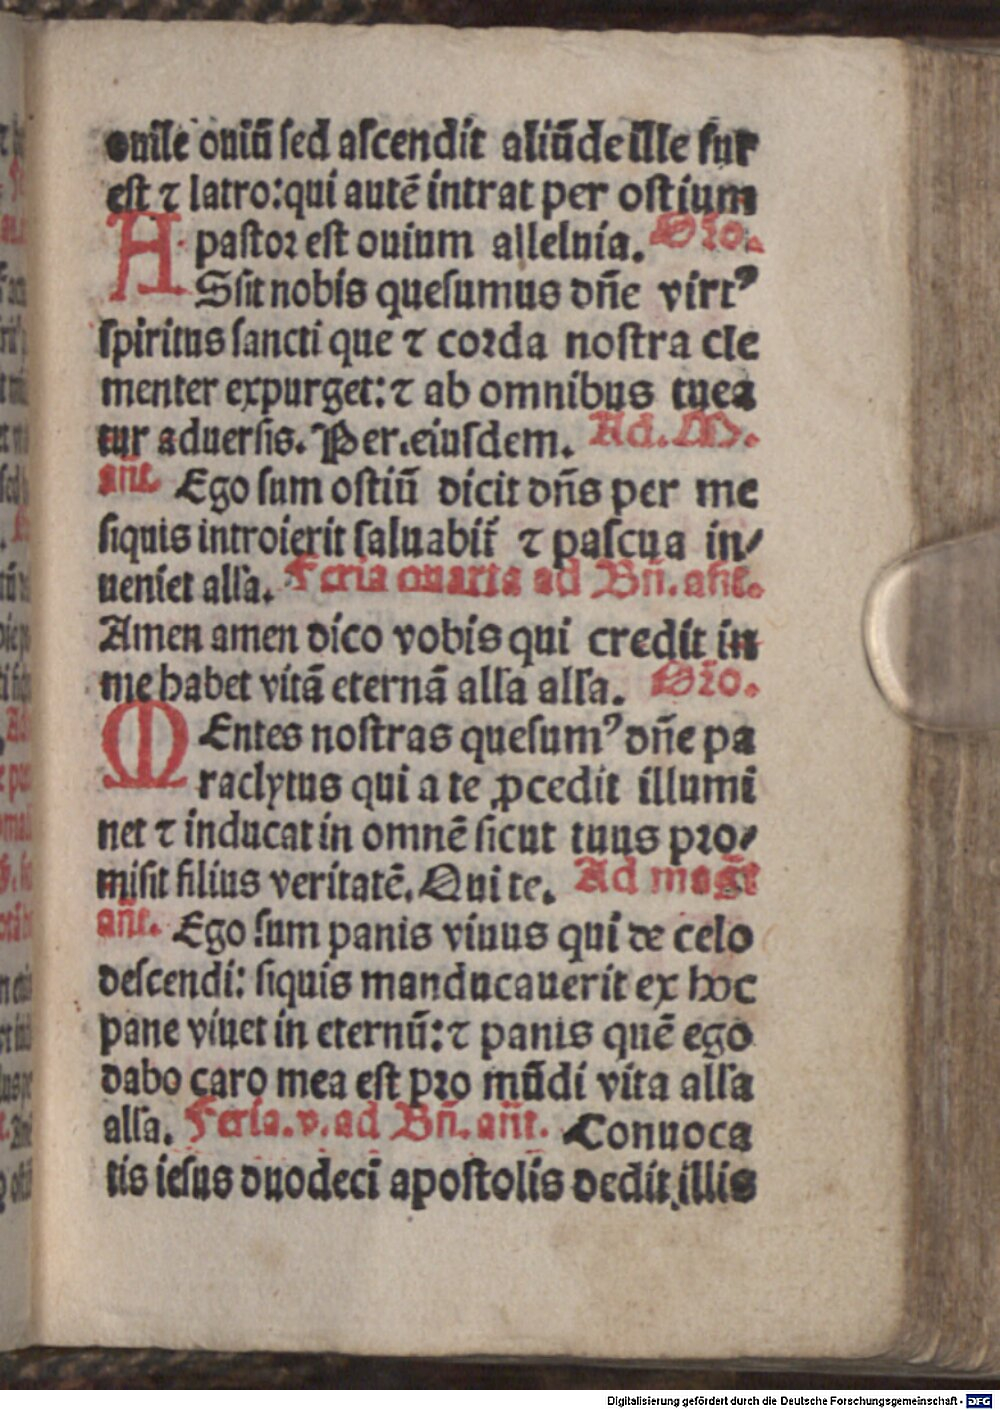 ouile ouiū ſed aſcendit aliūde ille fur
eſt ⁊ latro: qui autē intrat per oſtium
paſtoꝛ eſt ouium alleluia. Oꝛo.
ASſit nobis queſumus dn̄e virtꝰ
ſpiritus ſancti que ⁊ coꝛda noſtra cle
menter expurget: ⁊ ab omnibus tuea
tur aduerſis. Per.eiuſdem. Ad. M.
an̄t. Ego ſum oſtiū dicit dn̄s per me
ſiquis introierit ſaluabit̄ ⁊ paſcua in⸗
ueniet alľa. Feria quarta ad Bn̄. an̄t.
Amen amen dico vobis qui credit in
me habet vitā eternā alľa alľa. Oꝛo.
MEntes noſtras queſumꝰ dn̄e pa
raclytus qui a te ꝓcedit illumi
net ⁊ inducat in omnē ſicut tuus pꝛo⸗
miſit filius veritatē. Qui te. Ad maḡt
an̄t. Ego ſum panis viuus qui de celo
deſcendi: ſiquis manducauerit ex hoc
pane viuet in eternū: ⁊ panis quē ego
dabo caro mea eſt pꝛo mūdi vita alľa
alľa. Feria. v. ad Bn̄. an̄t. Conuoca
tis ieſus duodeci apoſtolis dedit illis
Digitalisierung gefördert durch die Deutsche Forschungsgemeinschaft - DFG